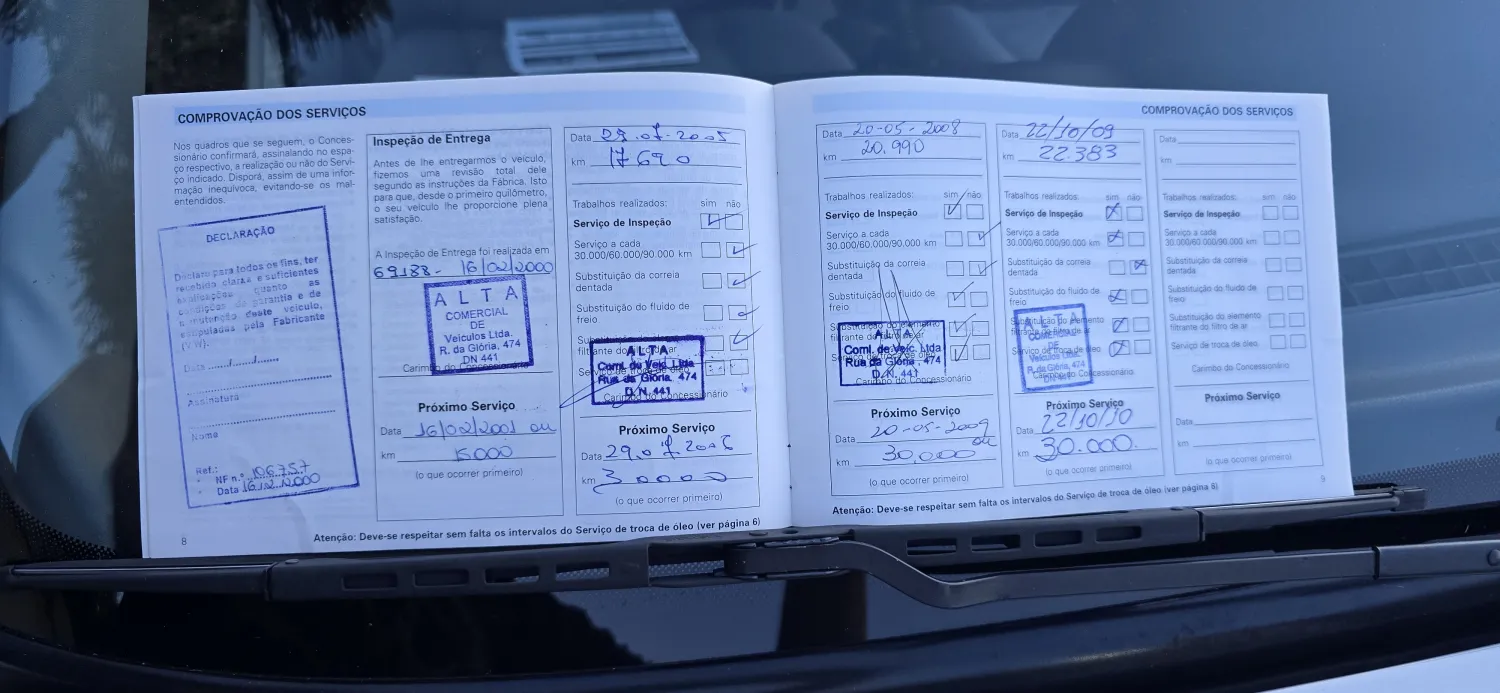 COMPROVAÇÃO DOS SERVIÇOS
Nos quadros que se seguem, o Conces-
sionário confirmará, assinalando no espa-
ço respectivo, a realização ou não do Servi-
ço indicado. Disporá, assim de uma infor-
mação inequívoca, evitando-se os mal-
entendidos.
DECLARAÇÃO
Declaro para todos os fins, ter
recebido claras e suficientes
explicações quanto as
condições de garantia e de
manutenção deste veículo,
estipuladas pela Fabricante
(VW).
Data ....../....../......
Assinatura
Nome
Ref.:
- NF n.º 106.757
- Data 16.2.2000
8
Inspeção de Entrega
Antes de lhe entregarmos o veículo,
fizemos uma revisão total dele
segundo as instruções da Fábrica. Isto
para que, desde o primeiro quilômetro,
o seu veículo lhe proporcione plena
satisfação.
A Inspeção de Entrega foi realizada em
69188- 16/02/2000
ALTA
COMERCIAL
DE
Veículos Ltda.
R. da Glória, 474
DN 441
Carimbo do Concessionário
Próximo Serviço
Data 16/02/2001 ou
km 15000
(o que ocorrer primeiro)
Data 29.07.2005
km 17690
Trabalhos realizados: sim não
Serviço de Inspeção
Serviço a cada
30.000/60.000/90.000 km
Substituição da correia
dentada
Substituição do fluido de
freio
Substituição
filtrante do ar
Serviço de troca de óleo
ALTA
Coml. de Veíc. Ltda
Rua da Glória, 474
D.N. 441
Carimbo do Concessionário
Próximo Serviço
Data 29.07.2006
km 30000
(o que ocorrer primeiro)
Atenção: Deve-se respeitar sem falta os intervalos do Serviço de troca de óleo (ver página 6)
COMPROVAÇÃO DOS SERVIÇOS
Data 20-05-2008
km 20.990
Trabalhos realizados: sim não
Serviço de Inspeção
Serviço a cada
30.000/60.000/90.000 km
Substituição da correia
dentada
Substituição do fluido de
freio
Substituição do elemento
filtrante do filtro de ar
Serviço de troca de óleo
ALTA
Coml. de Veíc. Ltda
Rua da Glória, 474
D.N. 441
Carimbo do Concessionário
Próximo Serviço
Data 20-05-2009
ou
km 30,000
(o que ocorrer primeiro)
Data 22/10/09
km 22.383
Trabalhos realizados: sim não
Serviço de Inspeção
Serviço a cada
30.000/60.000/90.000 km
Substituição da correia
dentada
Substituição do fluido de
freio
Substituição do elemento
filtrante do filtro de ar
Serviço de troca de óleo
ALTA
COMERCIAL
DE
Veículos Ltda.
R. da Glória, 474
DN 441
Carimbo do Concessionário
Próximo Serviço
Data 22/10/10
km 30.000.
(o que ocorrer primeiro)
Data
km
Trabalhos realizados: sim não
Serviço de Inspeção
Serviço a cada
30.000/60.000/90.000 km
Substituição da correia
dentada
Substituição do fluido de
freio
Substituição do elemento
filtrante do filtro de ar
Serviço de troca de óleo
Carimbo do Concessionário
Próximo Serviço
Data
km
(o que ocorrer primeiro)
Atenção: Deve-se respeitar sem falta os intervalos do Serviço de troca de óleo (ver página 6)
9